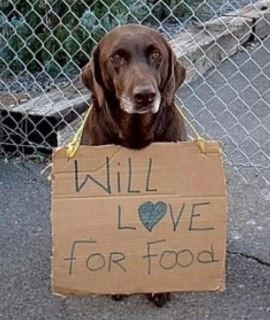 WiLL
LOVE
FOR FOOd